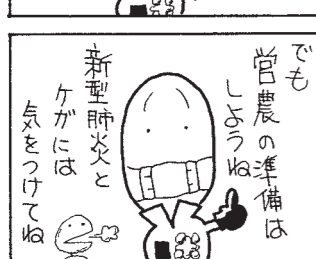 でも
営農の準備は
しようね
新型肺炎と
ケガには
気をつけてね